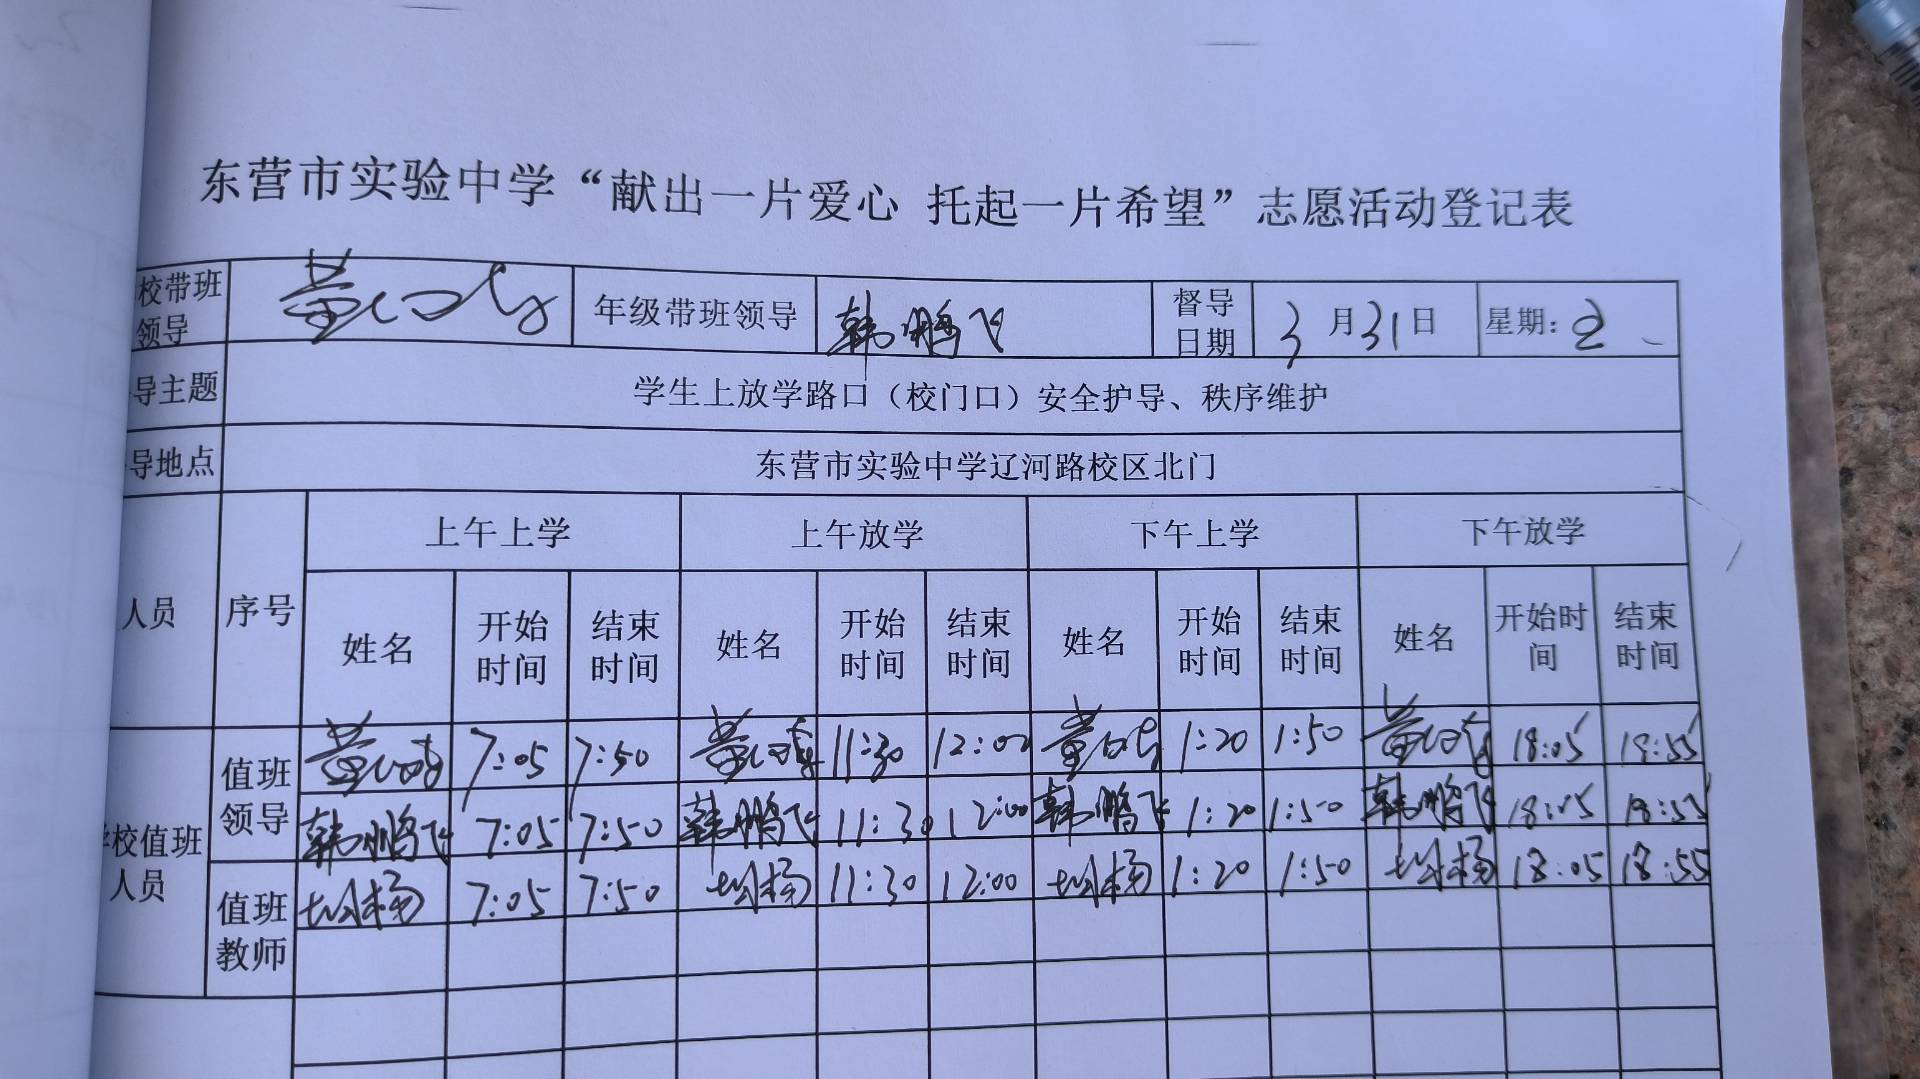 东营市实验中学“献出一片爱心 托起一片希望”志愿活动登记表
校带班领导 年级带班领导 韩鹏飞 督导日期 3月31日 星期:
导主题 学生上放学路口（校门口）安全护导、秩序维护
导地点 东营市实验中学辽河路校区北门
人员 序号 上午上学 上午放学 下午上学 下午放学
姓名 开始时间 结束时间 姓名 开始时间 结束时间 姓名 开始时间 结束时间 姓名 开始时间 结束时间
校值班人员 值班领导 7:05 7:50 11:30 12:00 1:20 1:50 18:05 18:55
韩鹏飞 7:05 7:50 韩鹏飞 11:30 12:00 韩鹏飞 1:20 1:50 韩鹏飞 18:05 18:55
值班教师 7:05 7:50 11:30 12:00 1:20 1:50 18:05 18:55